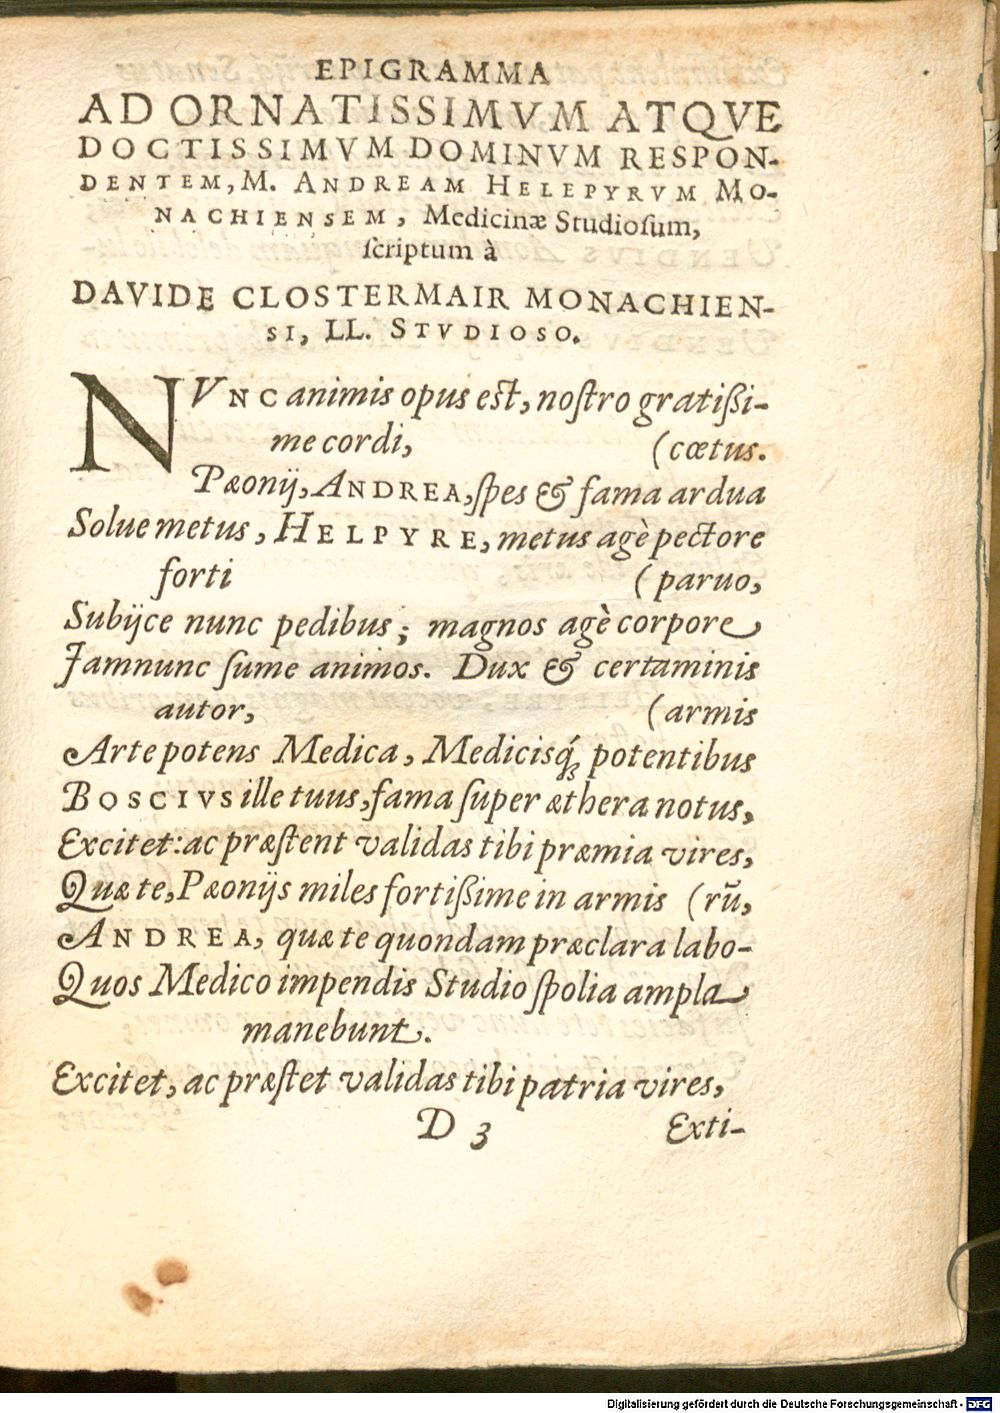 EPIGRAMMA
AD ORNATISSIMVM ATQVE
DOCTISSIMVM DOMINVM RESPON-
DENTEM, M. ANDREAM HELEPYRVM MO-
NACHIENSEM, Medicinæ Studioſum,
ſcriptum à
DAVIDE CLOSTERMAIR MONACHIEN-
SI, LL. STVDIOSO.
NVNC animis opus eſt, noſtro gratißi-
me cordi, (cœtus.
Pæonij, ANDREA, ſpes & fama ardua
Solue metus, HELPYRE, metus agè pectore
forti (paruo,
Subijce nunc pedibus; magnos agè corpore
Jamnunc ſume animos. Dux & certaminis
autor, (armis
Arte potens Medica, Medicisq́; potentibus
BOSCIVS ille tuus, fama ſuper æthera notus,
Excitet: ac præſtent validas tibi præmia vires,
Quæ te, Pæonijs miles fortißime in armis (rū,
ANDREA, quæ te quondam præclara labo-
Quos Medico impendis Studio ſpolia ampla
manebunt.
Excitet, ac præſtet validas tibi patria vires,
D 3 Exti-
Digitalisierung gefördert durch die Deutsche Forschungsgemeinschaft - DFG